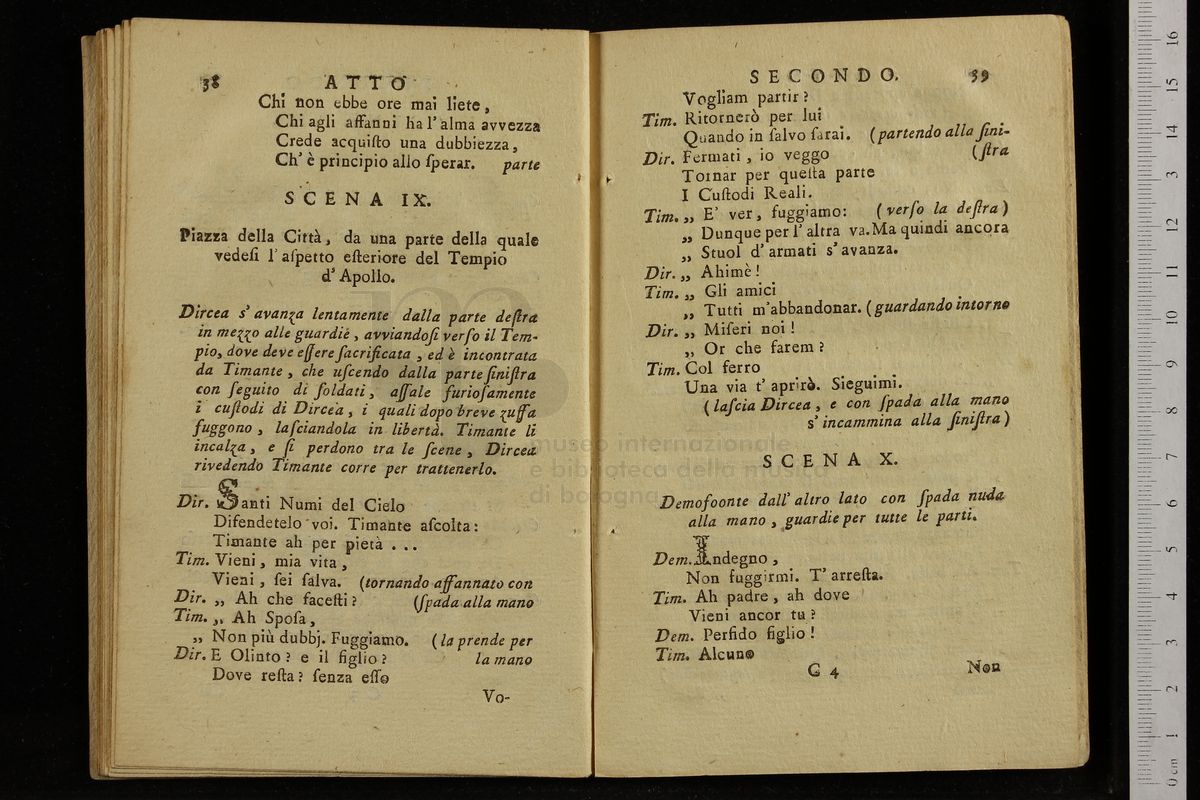 38 ATTO
Chi non ebbe ore mai liete,
Chi agli affanni ha l'alma avvezza
Crede acquiſto una dubbiezza,
Ch' è principio allo ſperar. parte
SCENA IX.
Piazza della Città, da una parte della quale
vedeſi l'aſpetto eſteriore del Tempio
d'Apollo.
Dircea s' avanza lentamente dalla parte deſtra
in mezzo alle guardie, avviandoſi verſo il Tem-
pio, dove deve eſſere ſacrificata, ed è incontrata
da Timante, che uſcendo dalla parte ſiniſtra
con ſeguito di ſoldati, aſſale furioſamente
i cuſtodi di Dircea, i quali dopo breve zuffa
fuggono, laſciandola in libertà. Timante li
incalza, e ſi perdono tra le ſcene, Dircea
rivedendo Timante corre per trattenerlo.
Dir. Santi Numi del Cielo
Difendetelo voi. Timante aſcolta:
Timante ah per pietà ...
Tim. Vieni, mia vita,
Vieni, ſei ſalva. (tornando affannato con
Dir. „ Ah che faceſti? (ſpada alla mano
Tim. „ Ah Spoſa,
„ Non più dubbj. Fuggiamo. (la prende per
Dir. E Olinto? e il figlio? la mano
Dove reſta? ſenza eſſo
Vo-
SECONDO. 39
Vogliam partir?
Tim. Ritornerò per lui
Quando in ſalvo ſarai. (partendo alla ſini-
Dir. Fermati, io veggo (ſtra
Tornar per queſta parte
I Cuſtodi Reali.
Tim. „ E' ver, fuggiamo: (verſo la deſtra)
„ Dunque per l'altra va. Ma quindi ancora
„ Stuol d'armati s'avanza.
Dir. „ Ahimè!
Tim. „ Gli amici
„ Tutti m'abbandonar. (guardando intorno
Dir. „ Miſeri noi!
„ Or che farem?
Tim. Col ferro
Una via t'aprirò. Sieguimi.
(laſcia Dircea, e con ſpada alla mano
s'incammina alla ſiniſtra)
SCENA X.
Demofoonte dall' altro lato con ſpada nuda
alla mano, guardie per tutte le parti.
Dem. Indegno,
Non fuggirmi. T'arreſta.
Tim. Ah padre, ah dove
Vieni ancor tu?
Dem. Perfido figlio!
Tim. Alcuno
G 4 Non
museo internazionale
e biblioteca della musica
di bologna
0 cm 1 2 3 4 5 6 7 8 9 10 11 12 13 14 15 16